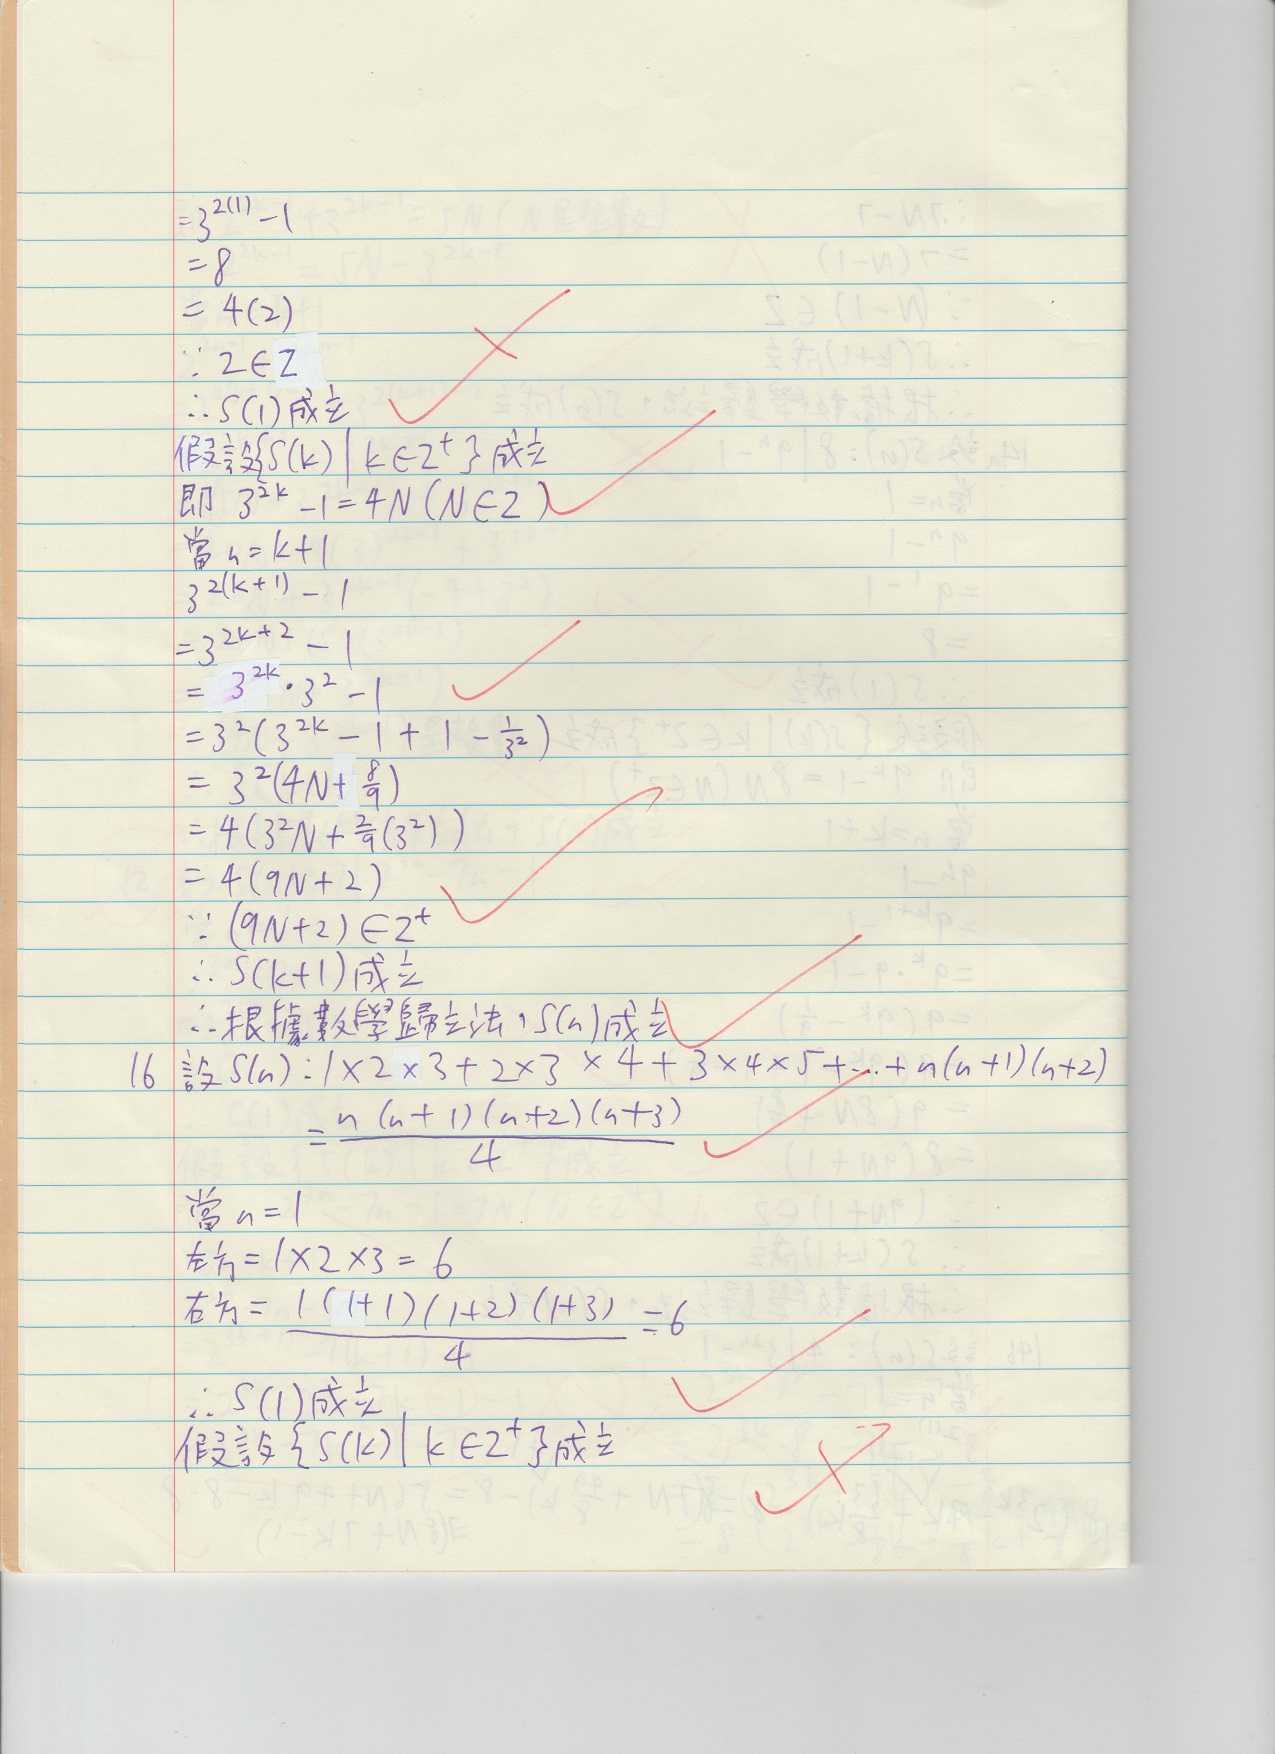 =3^{2(1)}-1
=8
=4(2)
∵2∈Z
∴S(1)成立
假設{S(k)|k∈Z⁺}成立
即 3^{2k}-1=4N(N∈Z)
當n=k+1
3^{2(k+1)}-1
=3^{2k+2}-1
=3^{2k}·3²-1
=3²(3^{2k}-1+1-1/3²)
=3²(4N+8/9)
=4(3²N+2/9(3²))
=4(9N+2)
∵(9N+2)∈Z⁺
∴S(k+1)成立
∴根據數學歸立法,S(n)成立
16 設S(n):1×2×3+2×3×4+3×4×5+...+n(n+1)(n+2)
=n(n+1)(n+2)(n+3)/4
當n=1
左方=1×2×3=6
右方=1(1+1)(1+2)(1+3)/4=6
∴S(1)成立
假設{S(k)|k∈Z⁺}成立